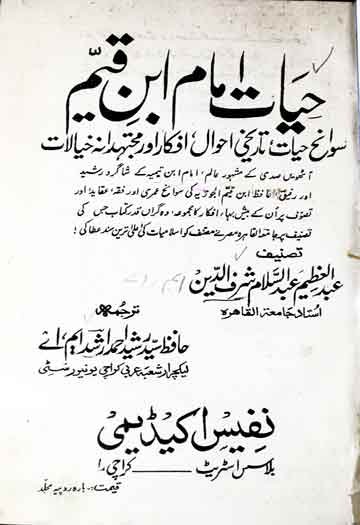 حیات امام ابن قیم
سوانح حیات، تاریخی احوال، افکار اور مجتہدانہ خیالات
آٹھویں صدی کے مشہور عالم، امام ابن تیمیہ کے شاگرد رشید
اور رفیق حافظ ابن قیم الجوزیہ کی سوانح عمری اور فقہ، عقاید اور
تصوف پر اُن کے بیش بہا، افکار کا مجموعہ، وہ گراں قدر کتاب جس کی
تصنیف پر جامعۃ القاہرہ مصر نے مصنف کو اسلامیات کی اعلیٰ ترین سند عطا کی؛
تصنیف
عبدالعظیم عبدالسلام شرف الدین
استاذ جامعۃ القاہرہ
ترجمہ
حافظ سید رشید احمد ارشد ایم، اے
لیکچرار شعبۂ عربی کراچی یونیورسٹی
نفیس اکیڈیمی
بلاسس اسٹریٹ ـــــ کراچی ۱
قیمت:۔ بارہ روپیہ مجلد